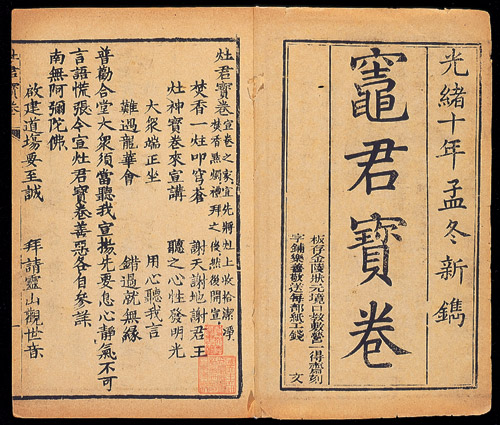 光緒十年孟冬新鐫
竈君寶卷
板存金陵狀元境口教敷營一得齋刻
字鋪樂善敬送每部紙工錢 文
灶君寶卷 宣卷之家宣先將灶上收拾潔淨
焚香點燭禮拜之後然後開宣
焚香一炷叩穹蒼 謝天謝地謝君王
灶神寶卷來宣講 聽之心性發明光
大衆端正坐 用心聽我言
難過龍華會 錯過就無緣
普勸合堂大衆須當聽我宣揚先要息心靜氣不可
言語慌張今宣灶君寶卷善惡各自參詳
南無阿彌陀佛
啟建道場要至誠 拜請靈山觀世音
灶君寶卷 一